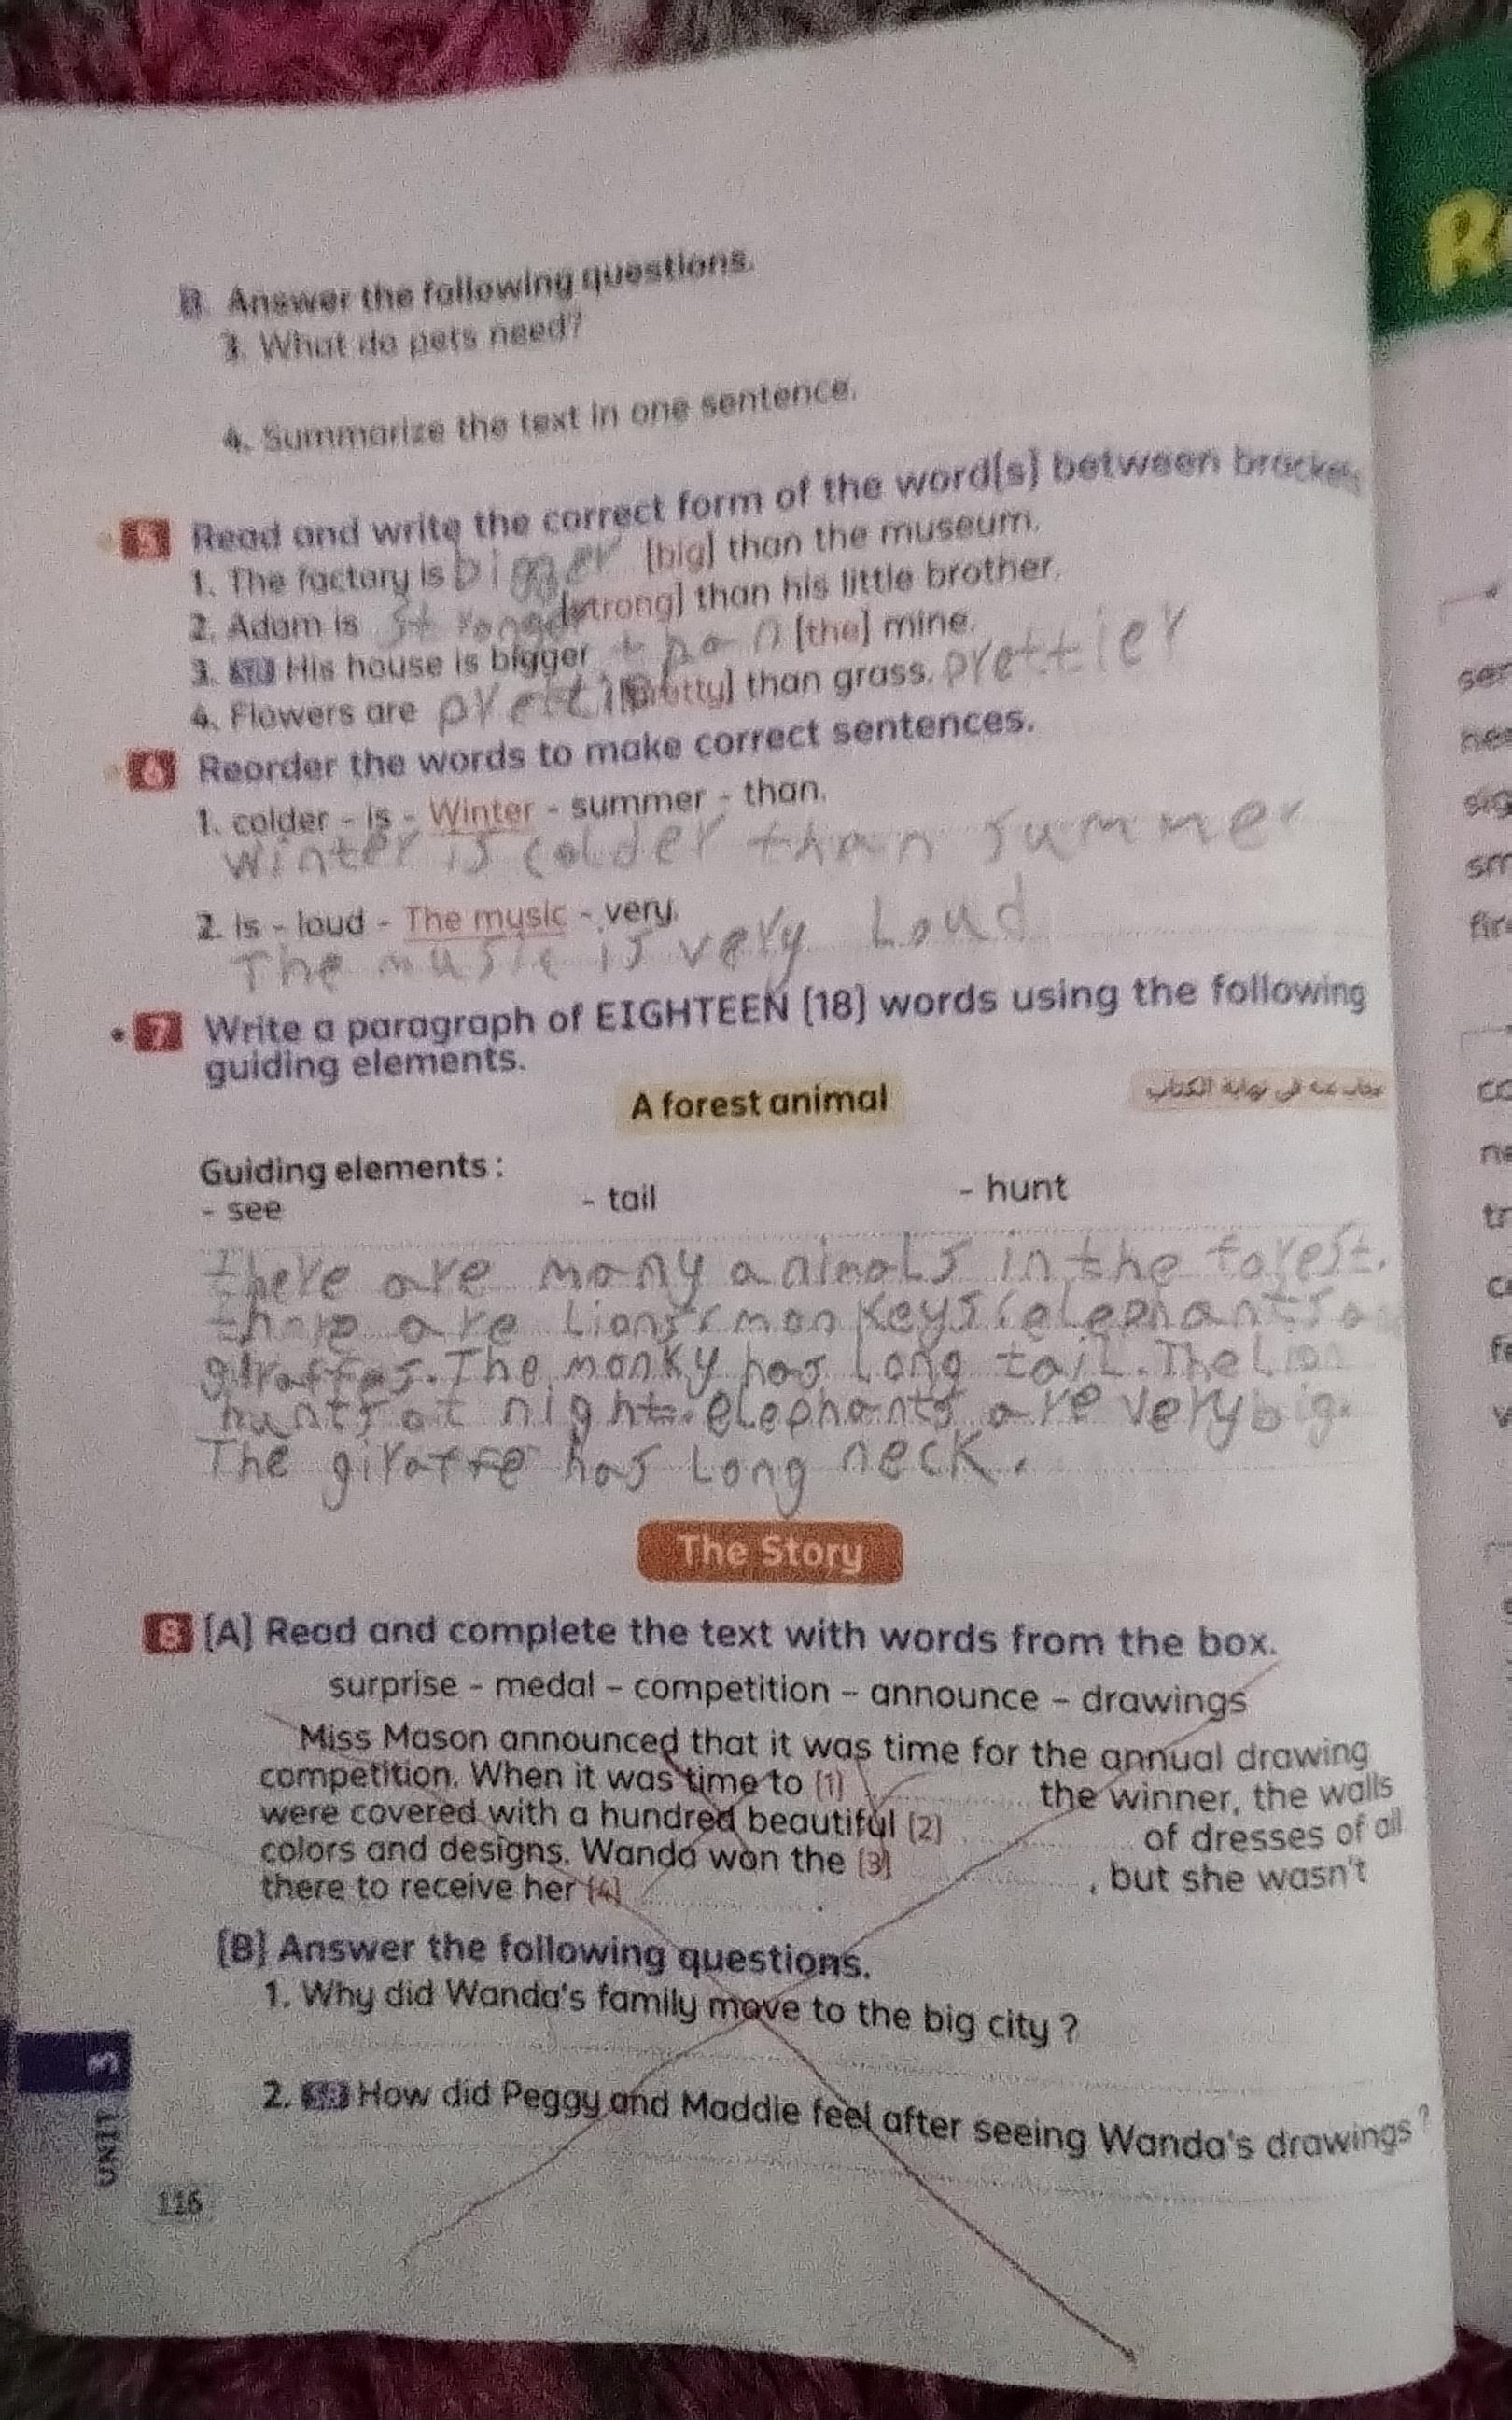 B. Answer the following questions.
3. What do pets need?
4. Summarize the text in one sentence.
5 Read and write the correct form of the word(s) between brackets
1. The factory is bigger (big) than the museum.
2. Adam is stronger (strong) than his little brother.
3. His house is bigger than (the) mine.
4. Flowers are prettier (pretty) than grass. prettier
6 Reorder the words to make correct sentences.
1. colder - is - Winter - summer - than.
Winter is colder than summer
2. is - loud - The music - very.
The music is very Loud
7 Write a paragraph of EIGHTEEN (18) words using the following
guiding elements.
A forest animal
مجاب عنه في نهاية الكتاب
Guiding elements :
- see - tail - hunt
there are many animals in the forest.
there are Lions, monkeys, elephants
giraffes. The monky has Long tail. The Lion
hunts at night. elephants are very big.
The giraffe has Long neck.
The Story
8 [A] Read and complete the text with words from the box.
surprise - medal - competition - announce - drawings
Miss Mason announced that it was time for the annual drawing
competition. When it was time to (1) the winner, the walls
were covered with a hundred beautiful (2) of dresses of all
colors and designs. Wanda won the (3) , but she wasn't
there to receive her (4) .
[B] Answer the following questions.
1. Why did Wanda's family move to the big city ?
2. How did Peggy and Maddie feel after seeing Wanda's drawings ?
UNIT 3
116